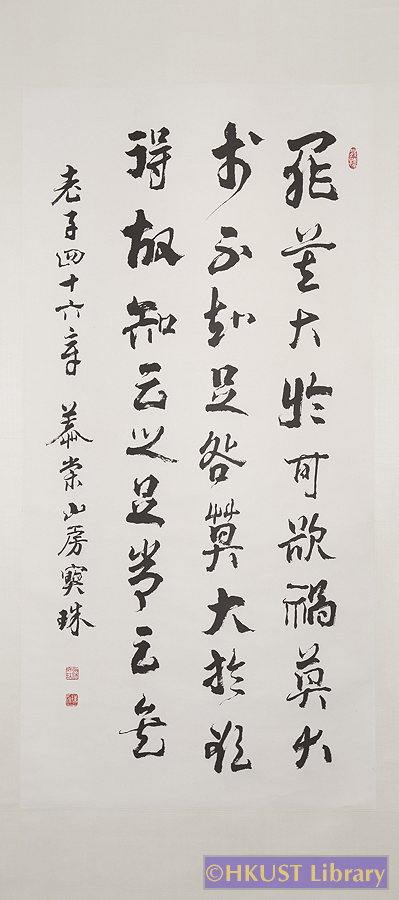 罪莫大於可欲禍莫大
於不知足咎莫大於欲
得故知足之足常足矣
老子四十六章 山房寶珠
©HKUST Library